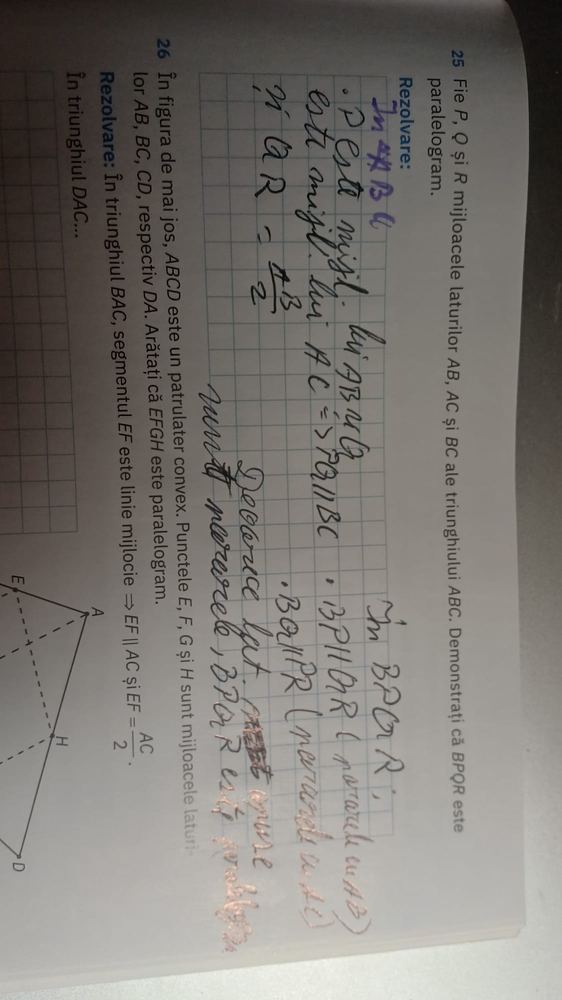 25 Fie P, Q și R mijloacele laturilor AB, AC și BC ale triunghiului ABC. Demonstrați că BPQR este
paralelogram.
Rezolvare:
În
• P este mijl. lui AB și Q
este mijl. lui AC => PQ || BC
și QR = AB/2
În BPQR:
• BP || QR (
• BQ || PR (
Deoarece lat. opuse
sunt paralele, BPQR este paralelogram
26 În figura de mai jos, ABCD este un patrulater convex. Punctele E, F, G și H sunt mijloacele laturi-
lor AB, BC, CD, respectiv DA. Arătați că EFGH este paralelogram.
Rezolvare: În triunghiul BAC, segmentul EF este linie mijlocie ⇒ EF || AC și EF = AC/2.
În triunghiul DAC...
A
E
H
D